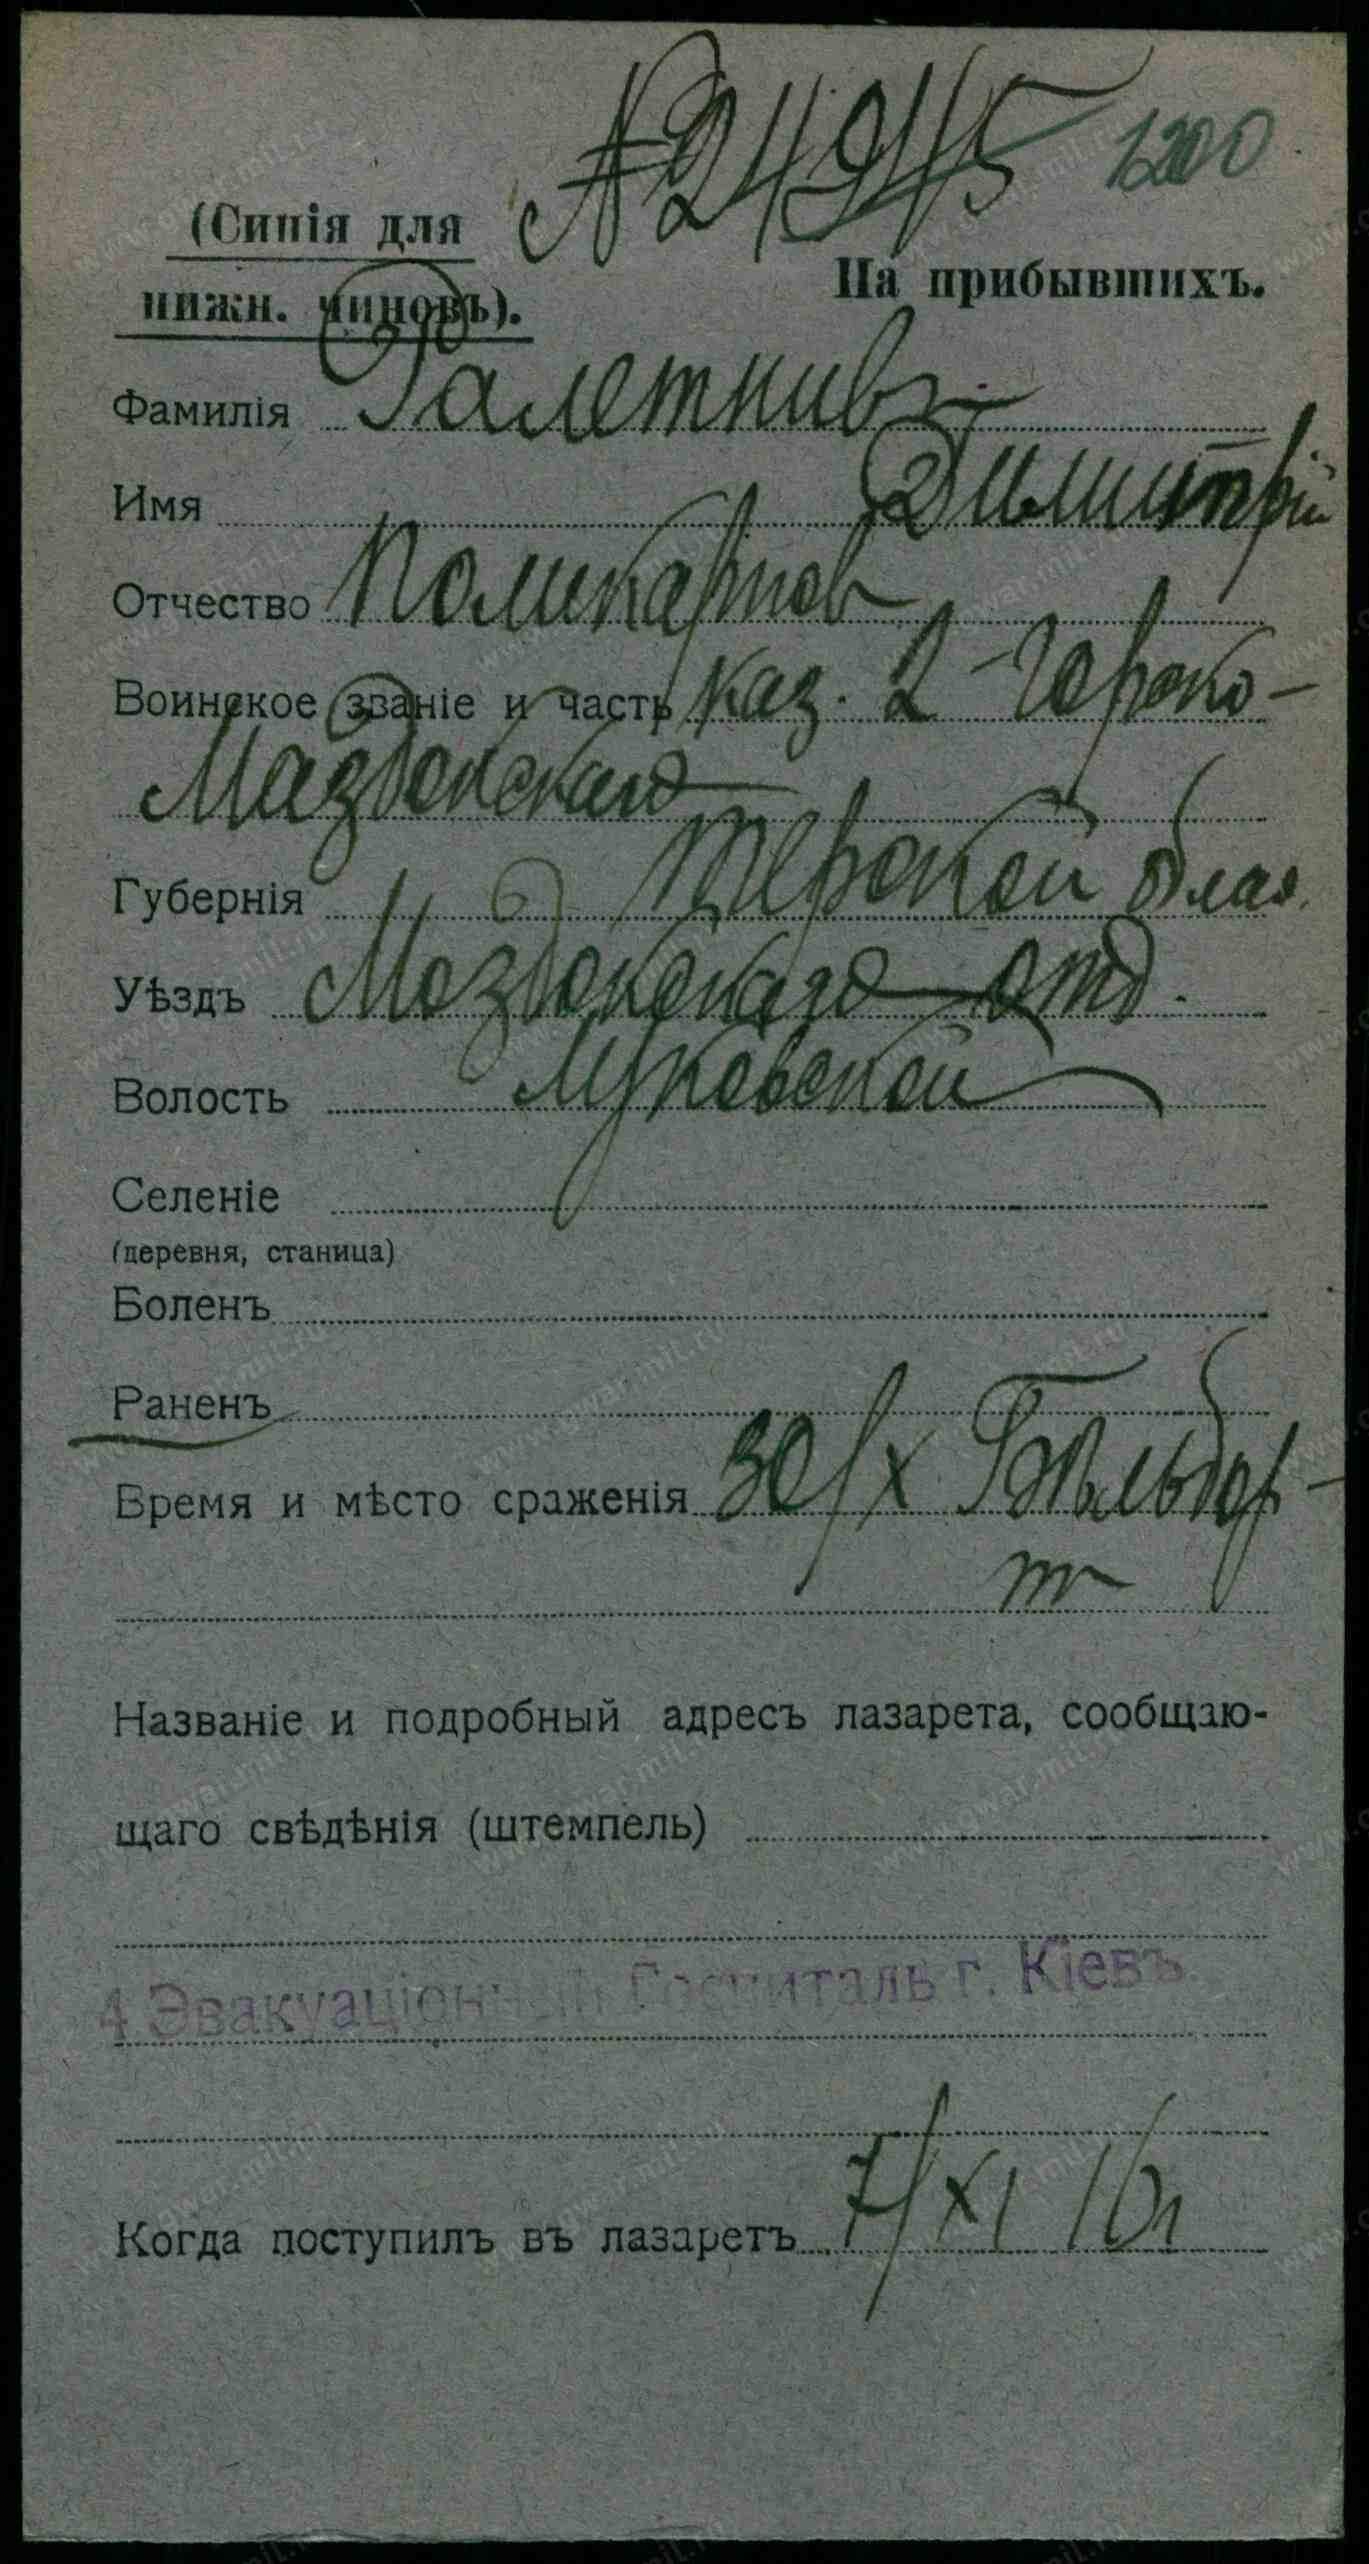 № 24945 1200
(Синія для
нижн. чиновъ).
На прибывшихъ.
Фамилія Галетнивъ
Имя Димитрій
Отчество Поликарпов
Воинское званіе и часть каз. 2-Горско-
Маздокскаго
Губернія Терской Облас.
Уѣздъ Моздокскаго отд.
Волость Луковской
Селеніе
(деревня, станица)
Боленъ
Раненъ
Время и мѣсто сраженія 30/X Бѣльбор-
т
Названіе и подробный адресъ лазарета, сообщаю-
щаго свѣдѣнія (штемпель)
4 Эвакуаціонный Госпиталь г. Кіевъ
Когда поступилъ въ лазаретъ 7/XI 16г